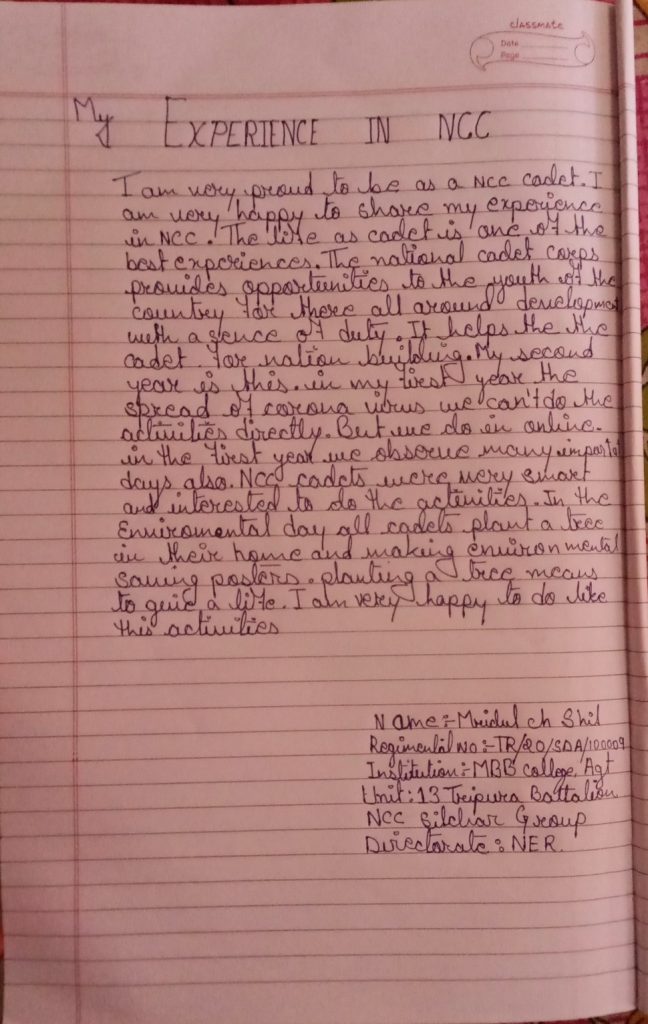 classmate
Date
Page
My EXPERIENCE IN NCC
I am very proud to be as a NCC cadet. I
am very happy to share my experience
in NCC. The life as cadet is one of the
best experiences. The national cadet corps
provides opportunities to the youth of the
country for there all around development
with a sence of duty. It helps the the
cadet for nation building. My second
year is this. in my first year the
spread of corona virus we can't do the
activities directly. But we do in online.
in the first year we observe many importat
days also. NCC cadets were very smart
and interested to do the activities. In the
Enviromental day all cadets plant a tree
in their home and making environmental
saving posters. planting a tree means
to give a life. I am very happy to do like
this activities
Name:- Mridul ch Shil
Regimental No:- TR/20/SDA/100009
Institution:- MBB college, Agt
Unit: 13 Tripura Battalion
NCC Silchar Group
Directorate: NER.